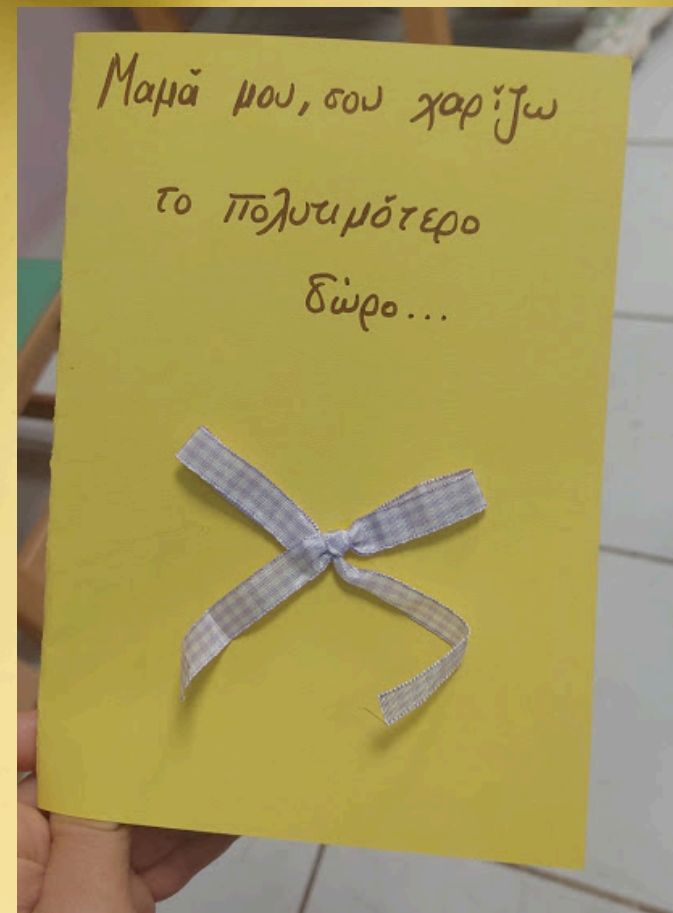 Μαμά μου, σου χαρίζω
το πολυτιμότερο
δώρο...